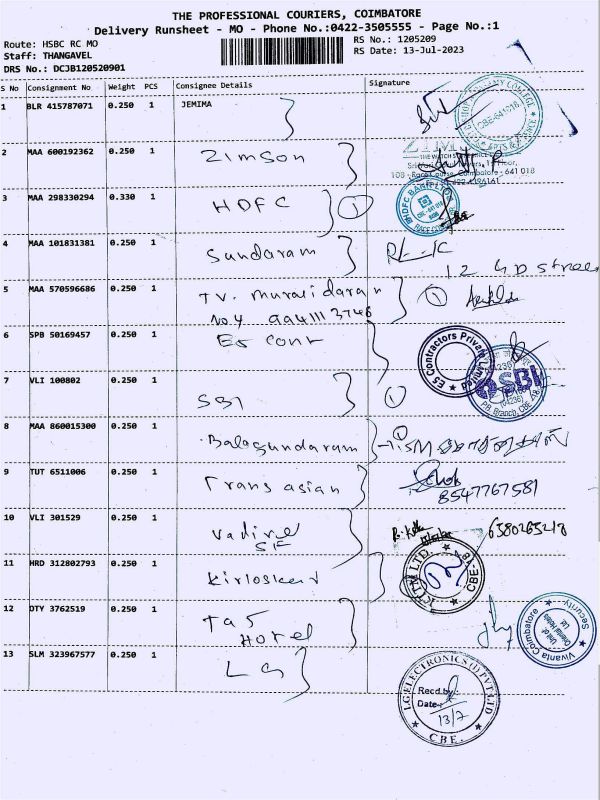 THE PROFESSIONAL COURIERS, COIMBATORE
Delivery Runsheet - MO - Phone No.:0422-3505555 - Page No.:1
Route: HSBC RC MO
RS No.: 1205209
Staff: THANGAVEL
RS Date: 13-Jul-2023
DRS No.: DCJB120520901
S No Consignment No Weight PCS Consignee Details Signature
1 BLR 415787071 0.250 1 JEMIMA
CBE-641018
ARTS &
2 MAA 600192362 0.250 1 Zimson
108 - Race Course, Coimbatore - 641 018
3 MAA 298330294 0.330 1 HDFC 1
4 MAA 101831381 0.250 1 Sundaram
5 MAA 570596686 0.250 1 TV. muralidaran 1
No 4 9941113746
6 SPB 50169457 0.250 1 ES Cont
ES Contractors Private Limited
7 VLI 100802 0.250 1 SBI 1
SBI
8 MAA 860015300 0.250 1 Balasundaram
9 TUT 6511006 0.250 1 Trans asian
8547767581
10 VLI 301529 0.250 1
6380265218
11 HRD 312802793 0.250 1
CBE-
12 OTY 3762519 0.250 1 Taj
Hotel
Vivanta Coimbatore
Unit of
Oriental Hotels
Ltd
Security
13 SLM 323967577 0.250 1 LG
L.G ELECTRONICS (I) PVT LTD
Recd.by
Date
13/7
CBE.